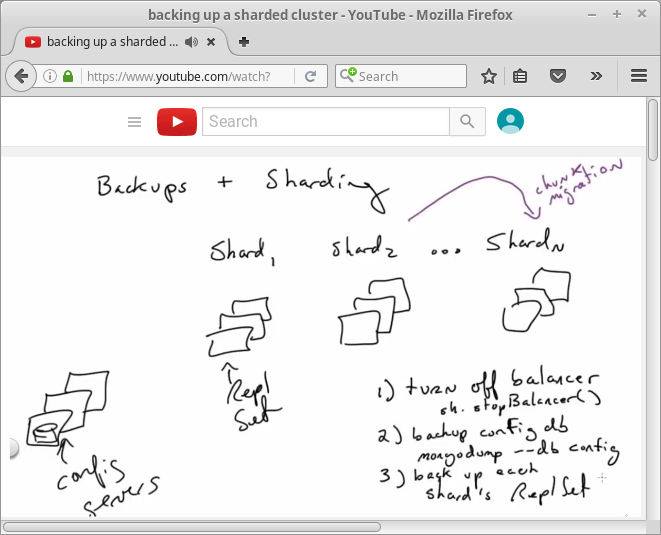 backing up a sharded cluster - YouTube - Mozilla Firefox
backing up a sharded ...
https://www.youtube.com/watch?
Search
Search
Backups + Sharding
chunk
migration
Shard1 Shard2 ... ShardN
Repl
Set
config
servers
1) turn off balancer
sh.stopBalancer()
2) backup config db
mongodump --db config
3) back up each
shard's Repl Set